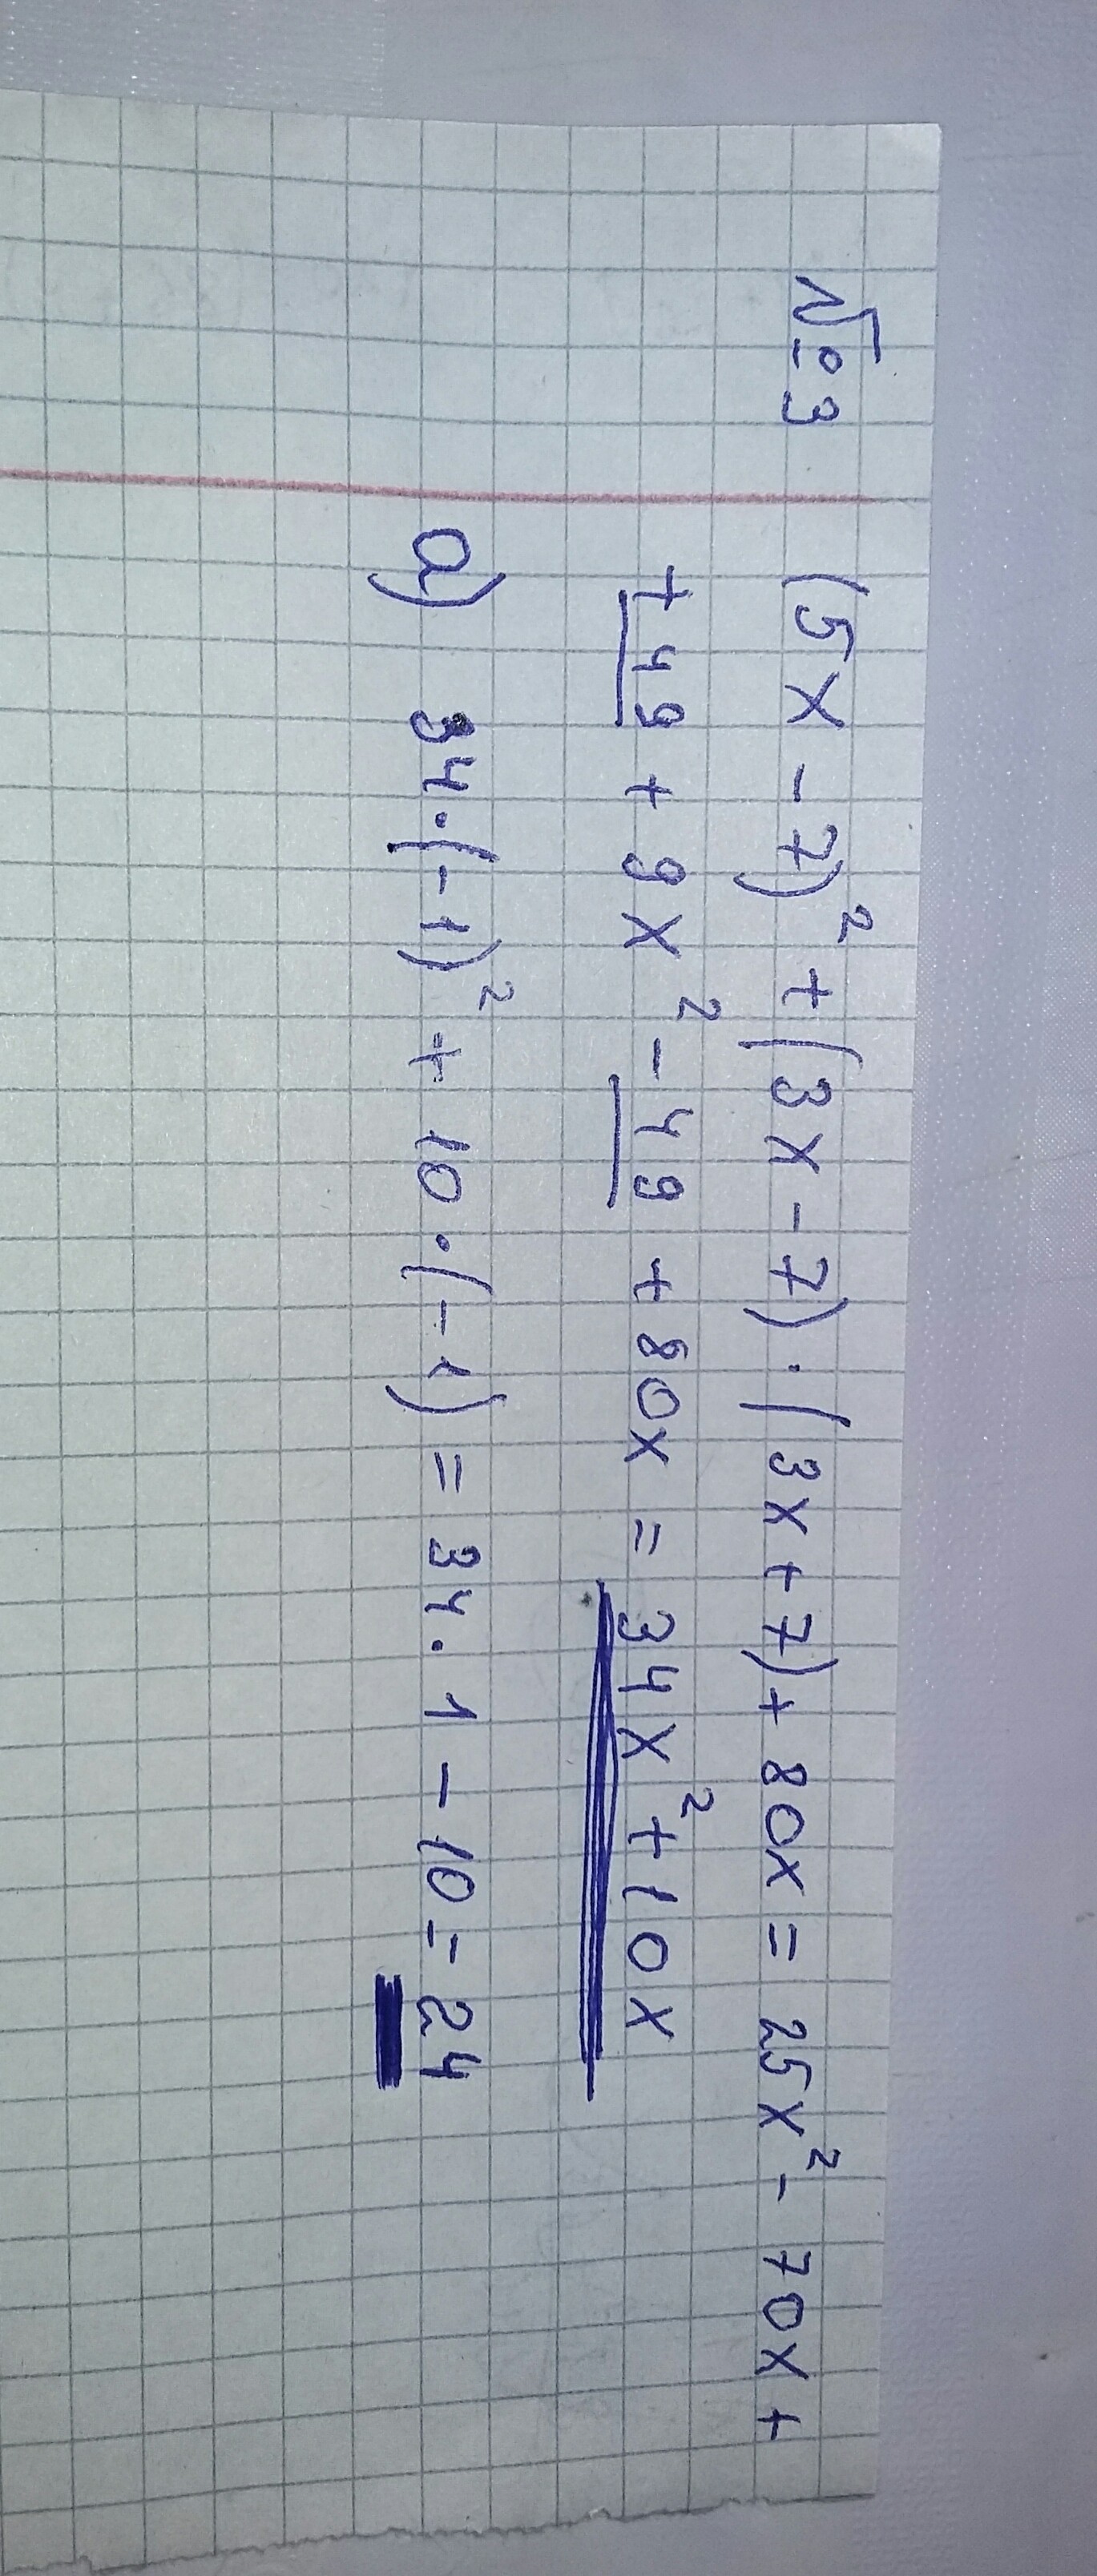 №3 (5x - 7)² + (3x - 7) · (3x + 7) + 80x = 25x² - 70x +
+ 49 + 9x² - 49 + 80x = 34x² + 10x
a) 34 · (-1)² + 10 · (-1) = 34 · 1 - 10 = 24